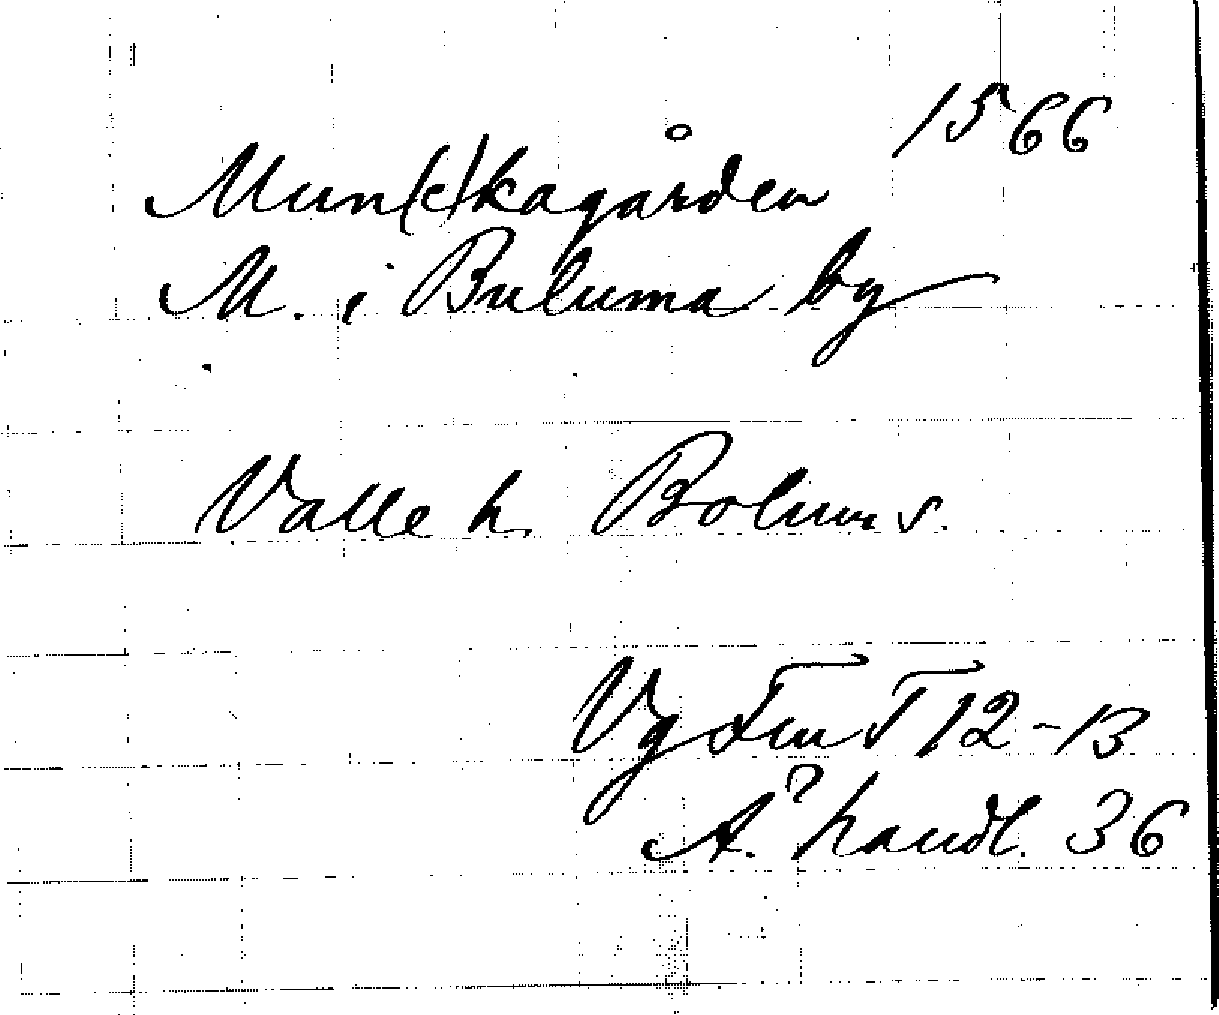 1566
Mun(c)kagården
M. i Buluma by
Valle h. Bolums s.
Vg Fornt T 12-13
A? handl. 36